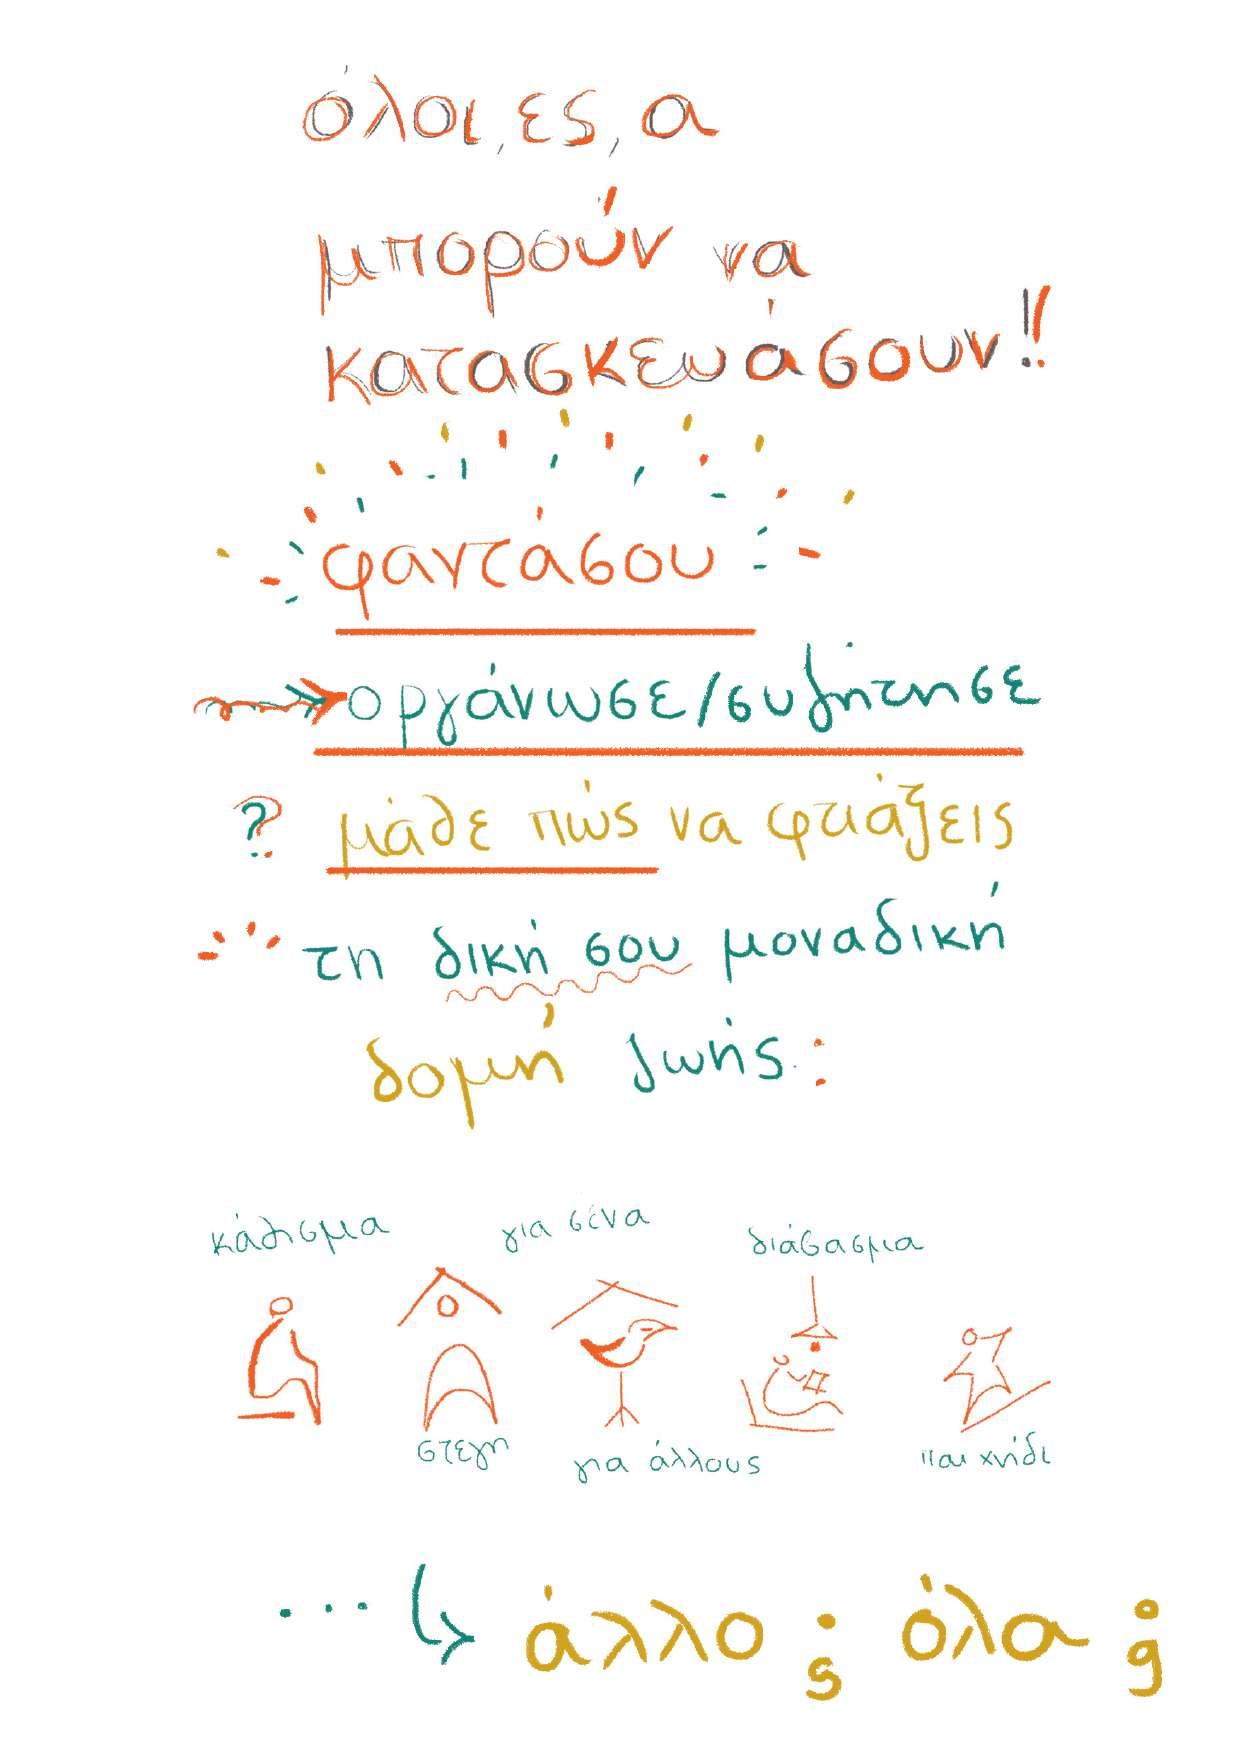 όλοι, ες, α
μπορούν να
κατασκευάσουν!!
φαντάσου
οργάνωσε/συζήτησε
? μάθε πώς να φτιάξεις
τη δική σου μοναδική
δομή ζωής:
κάθισμα για σένα διάβασμα
στέγη για άλλους παιχνίδι
... άλλο; όλα;